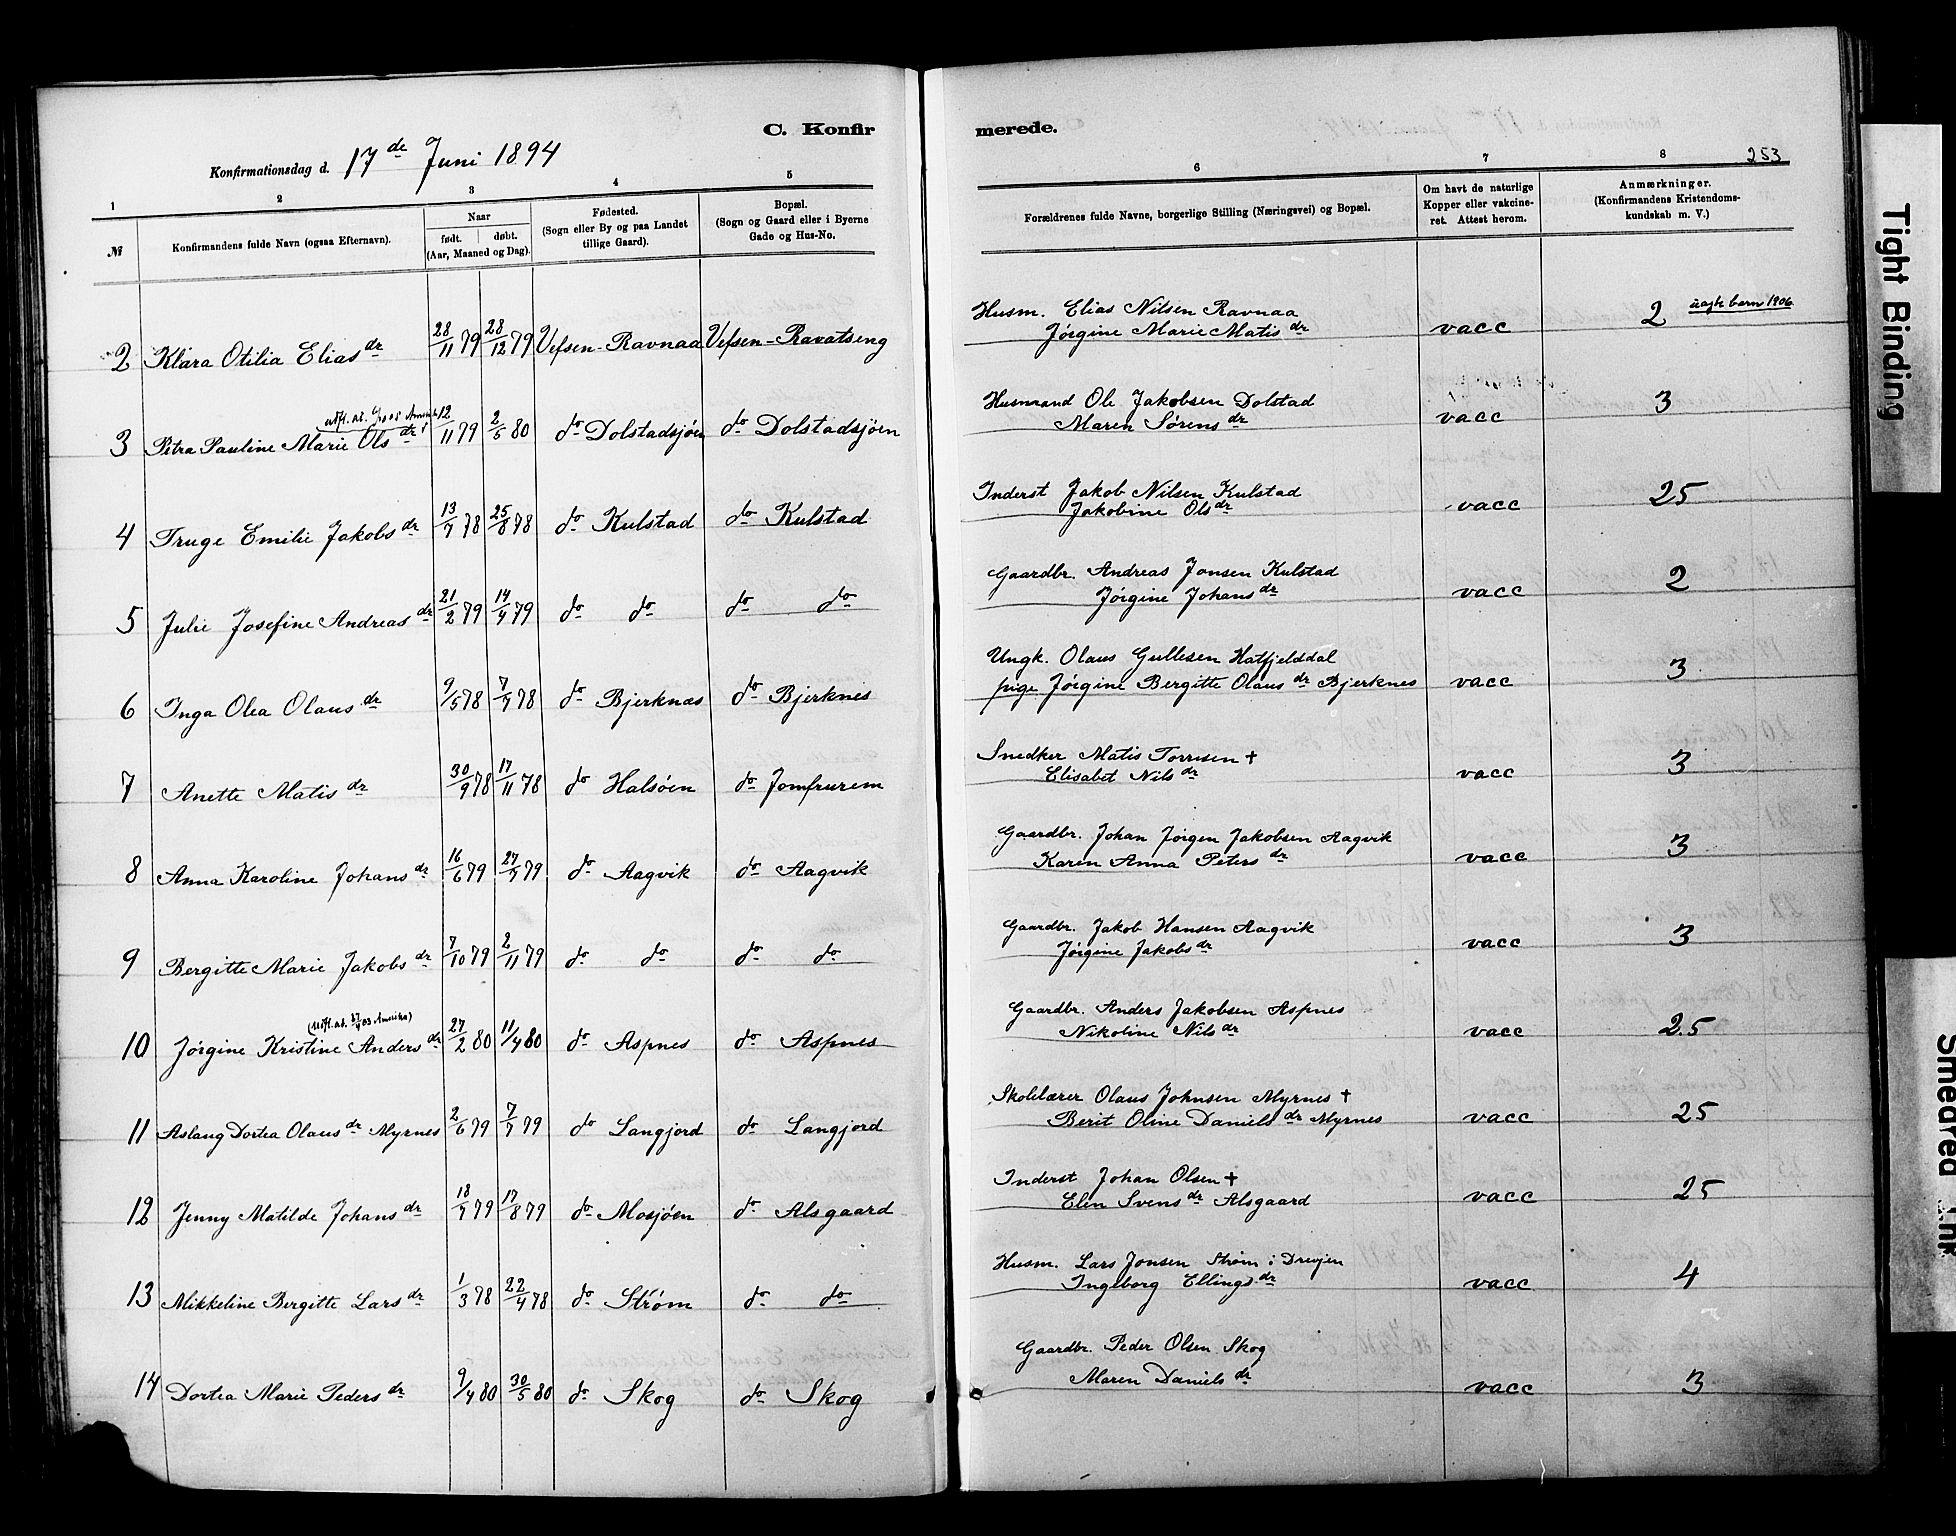 C. Konfir merede.
Konfirmationsdag d. 17de Juni 1894
253
1 2 3 4 5 6 7 8
№
Konfirmandens fulde Navn (ogsaa Efternavn).
Naar
født. døbt.
(Aar, Maaned og Dag).
Fødested.
(Sogn eller By og paa Landet
tillige Gaard).
Bopæl.
(Sogn og Gaard eller i Byerne
Gade og Hus-No.
Forældrenes fulde Navne, borgerlige Stilling (Næringsvei) og Bopæl.
Om havt de naturlige
Kopper eller vakcine-
ret. Attest herom.
Anmærkninger.
(Konfirmandens Kristendoms-
kundskab m. V.)
2 Klara Otilia Elias dr 28/11 79 28/12 79 Vefsen-Ravnaa Vefsen-Ravatseng
Husm. Elias Nilsen Ravnaa
Jørgine Marie Matis dr vacc 2 uagte barn 1906
3 Petra Pauline Marie Ols dr 12/11 79 2/5 80 do Dolstadsjøen do Dolstadsjøen
Husmand Ole Jakobsen Dolstad
Maren Sørens dr vacc 3
4 Truge Emilie Jakobs dr 13/7 78 25/8 78 do Kulstad do Kulstad
Inderst Jakob Nilsen Kulstad
Jakobine Ols dr vacc 25
5 Julie Josefine Andreas dr 21/2 79 14/4 79 do do do do
Gaardbr. Andreas Jonsen Kulstad
Jørgine Johans dr vacc 2
6 Inga Olea Olaus dr 9/5 78 7/7 78 do Bjerknæs do Bjerknes
Ungk. Olaus Gullesen Hatfjelddal
pige Jørgine Bergitte Olaus dr Bjerknes vacc 3
7 Anette Matis dr 30/9 78 17/11 78 do Halsøen do Jomfrurem
Snedker Matis Torrisen †
Elisabet Nils dr vacc 3
8 Anna Karoline Johans dr 16/6 79 27/7 79 do Aagvik do Aagvik
Gaardbr. Johan Jørgen Jakobsen Aagvik
Karen Anna Peters dr vacc 3
9 Bergitte Marie Jakobs dr 7/10 79 2/11 79 do do do do
Gaardbr. Jakob Hansen Aagvik
Jørgine Jakobs dr vacc 3
(Udfl. at. 27/4 03 Amerika)
10 Jørgine Kristine Anders dr 27/2 80 11/4 80 do Aspnes do Aspnes
Gaardbr. Anders Jakobsen Aspnes
Nikoline Nils dr vacc 2.5
11 Aslaug Dortea Olaus dr Myrnes 2/6 79 7/7 79 do Langjord do Langjord
Skolelærer Olaus Johnsen Myrnes †
Berit Oline Daniels dr Myrnes vacc 25
12 Jenny Matilde Johans dr 18/7 79 17/8 79 do Mosjøen do Alsgaard
Inderst Johan Olsen †
Elen Svens dr Alsgaard vacc 25
13 Mikkeline Bergitte Lars dr 1/3 78 22/4 78 do Strøm do do
Husm. Lars Jonsen Strøm i Drevjen
Ingeborg Ellings dr vacc 4
14 Dortea Marie Peders dr 9/4 80 30/5 80 do Skog do Skog
Gaardbr. Peder Olsen Skog
Maren Daniels dr vacc 3
Tight Binding
Smeared Ink